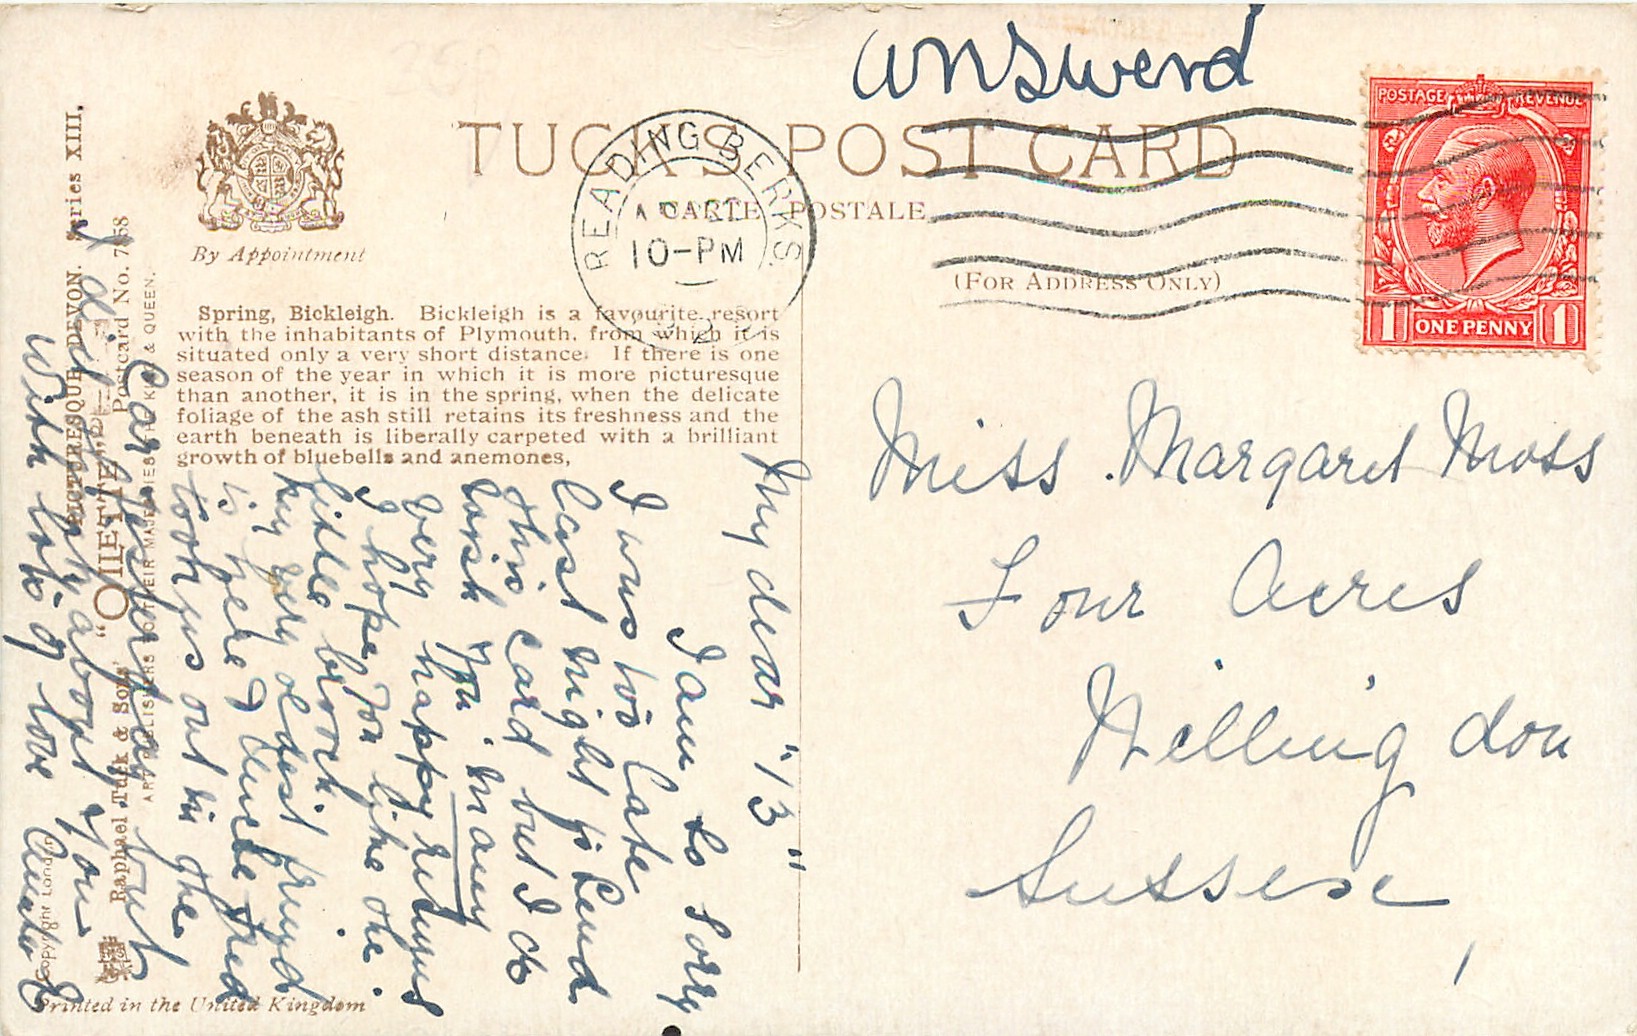 answerd
TUCK'S POST CARD
CARTE POSTALE
(FOR ADDRESS ONLY)
By Appointment
READING BERKS.
10-PM
POSTAGE REVENUE
1 ONE PENNY 1
Spring, Bickleigh. Bickleigh is a favourite resort
with the inhabitants of Plymouth, from which it is
situated only a very short distance. If there is one
season of the year in which it is more picturesque
than another, it is in the spring, when the delicate
foliage of the ash still retains its freshness and the
earth beneath is liberally carpeted with a brilliant
growth of bluebells and anemones,
Miss Margaret Moss
Four Acres
Willingdon
Sussex
My dear "13"
I am so sorry
I was too late
last night to send
this card but I do
wish you many
very happy returns
I hope you like the
little brooch
my very oldest friend
is here & Auntie
took us out in the
Car yesterday but
I didn't about you
With lots of love Auntie
PICTURESQUE DEVON. Series XIII,
"OILETTE" Postcard No. 7558
Raphael Tuck & Sons'
ART PUBLISHERS TO THEIR MAJESTIES THE KING & QUEEN.
Copyright London
Printed in the United Kingdom